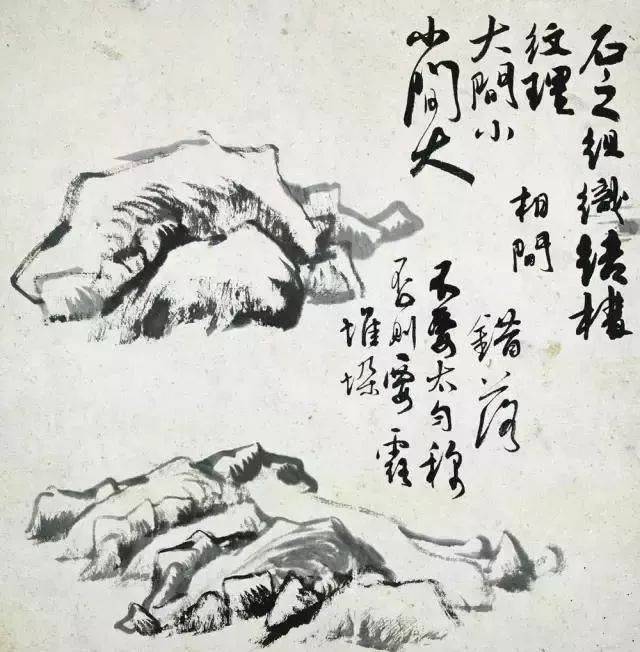 石之組織結構
紋理
大間小
小間大
相間
錯落
不要太勻称
否則要露
堆垛